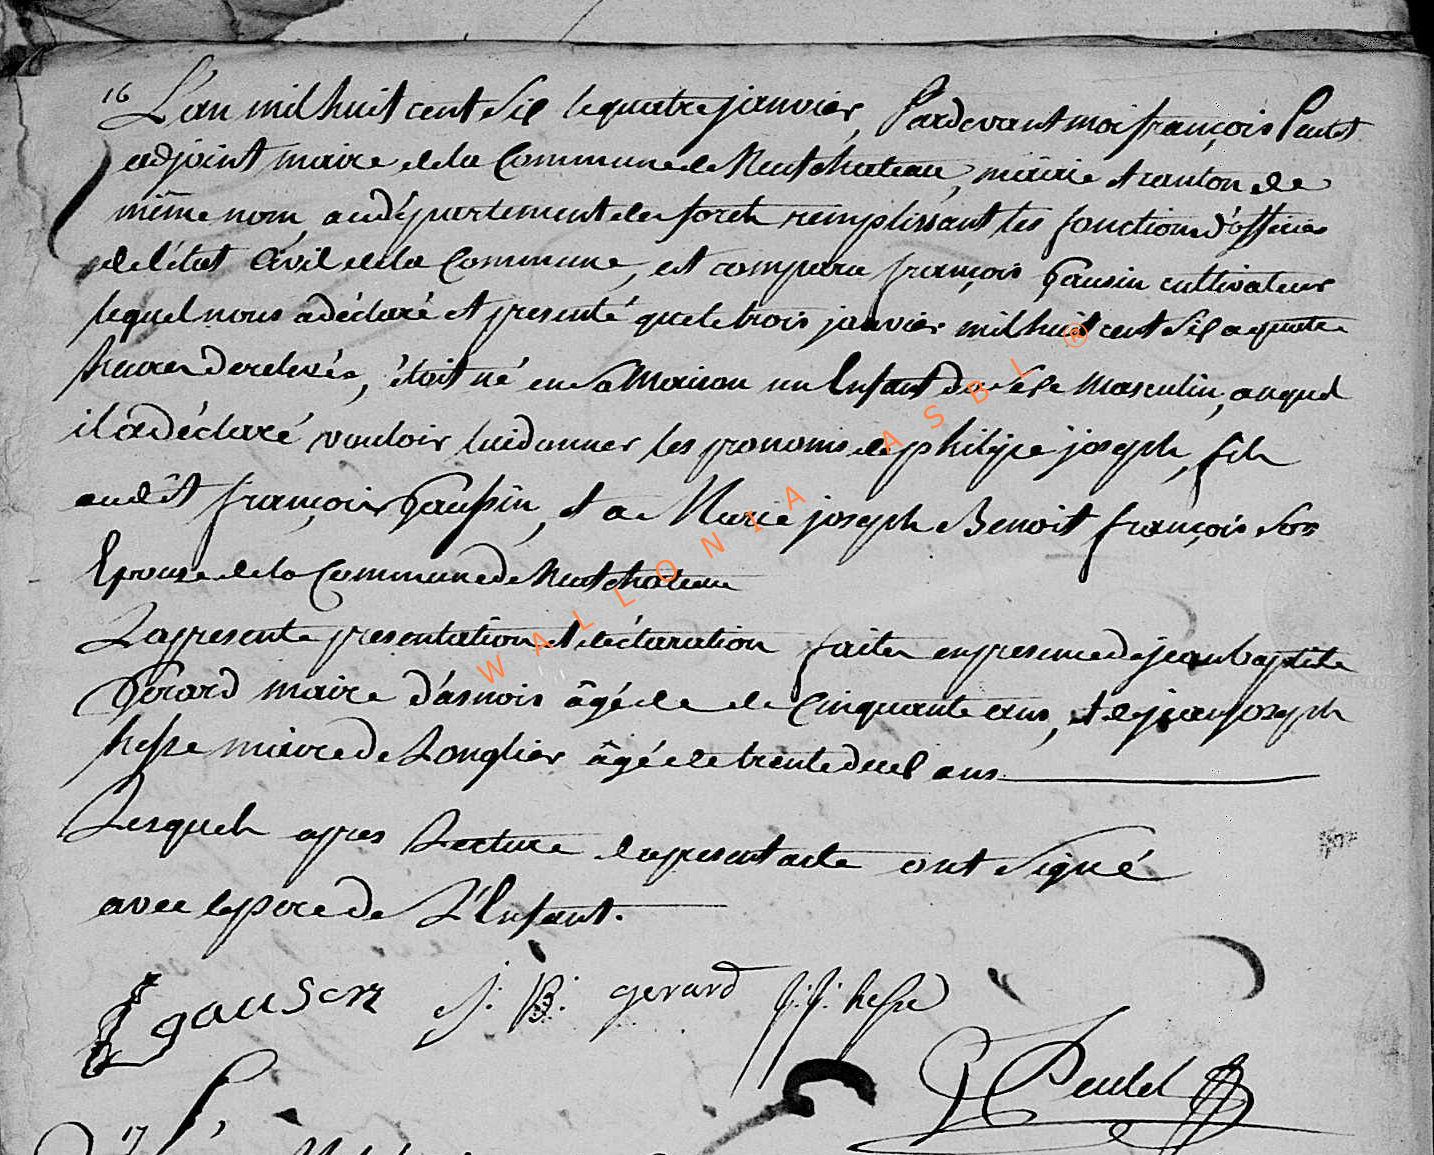 16 L'an mil huit cent Six le quatre janvier, Pardevant moi françois
adjoint maire de la Commune de Neufchateau, mairie et canton de
même nom, au département des forets remplissant les fonctions d'officier
de l'état Civil de la Commune, est comparu françois Gausin cultivateur
lequel nous a déclaré et presenté que le trois janvier mil huit cent Six a quatre
heures de relevée, étoit né en sa Maison un Enfant de sexe Masculin, auquel
il a déclaré vouloir lui donner les prenoms de philippe joseph, fils
audit françois Gaussin, et a Marie joseph Benoit françois son
Epouse de la Commune de Neufchateau
La presente presentation et declaration faites en presence de jean baptiste
Gerard maire d'asnois âgé de de Cinquante ans, et de jean joseph
hesse maire de Longlier âgé de trente deux ans
Lesquels apres Lecture du present acte ont signé
avec le pere de L'Enfant.
gausen J: B: gerard j: j: hesse
17
WALLONIA ASBL ®